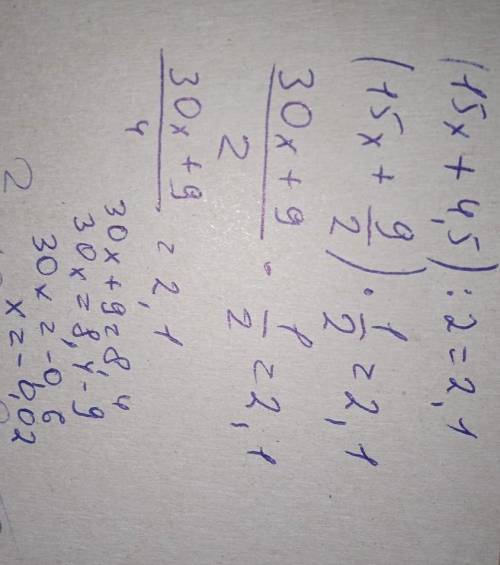 (15x + 4,5) : 2 = 2,1
(15x + 9/2) · 1/2 = 2,1
30x + 9/2 · 1/2 = 2,1
30x + 9/4 = 2,1
30x + 9 = 8,4
30x = 8,4 - 9
30x = -0,6
x = -0,02
2